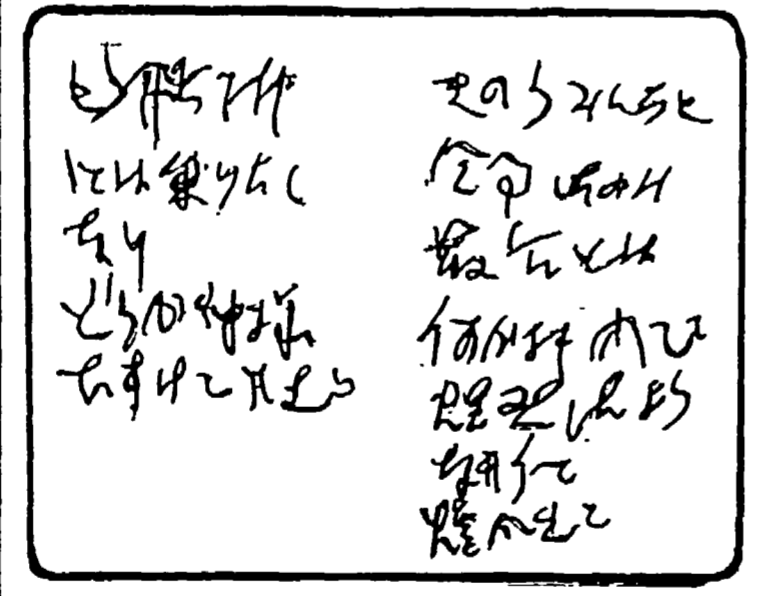 もう飛行機
には乗りたく
ない
どうか神様
たすけて下さい
きのうみんなと
食事したのは
最后とは
何か機内で
爆発したよう
な形で
煙が出て